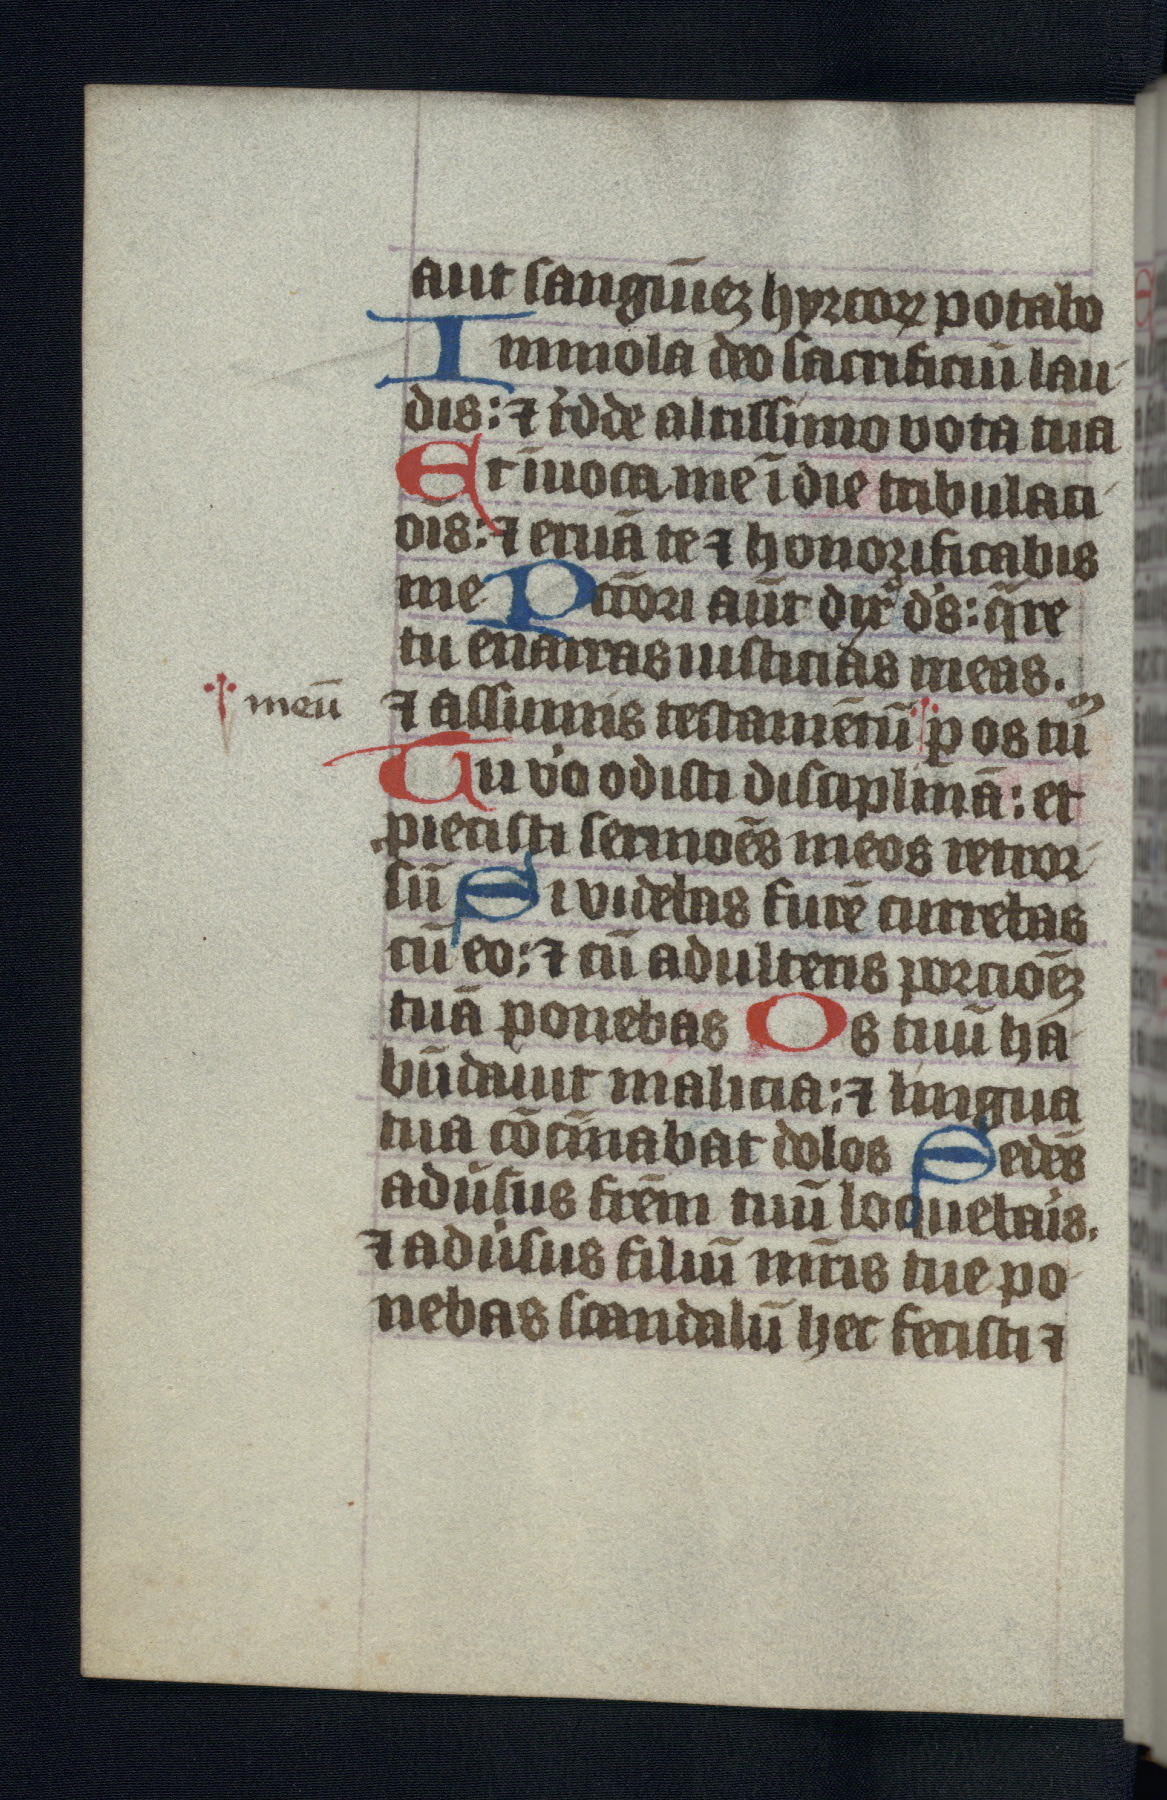 aut sangui̅ez hyrcoꝝ potabo
Immola deo sacrificiu̅ lau-
dis: ⁊ rͥdde altissimo vota tua
Et i̅uoca me i̅ die tribulaci-
o̅is: ⁊ erua̅ te ⁊ honorificabis
me Pcc̅ori au̅t dixͭ dᷤs: q̅re
tu enarras iusticias meas.
⁊ assumis testame̅tu̅ ꝑ os tuu̅
meu̅
Tu vͦo odisti disciplina̅: et
piecisti sermoe̅s meos retror-
su̅ Si videbas fure̅ currebas
cu̅ eo: ⁊ cu̅ adulteris porcio̅ez
tua̅ ponebas Os tuu̅ ha-
bu̅dauit malicia: ⁊ lingua
tua co̅ci̅nabat dolos Sede̅s
adưsus fre̅m tuu̅ loquebaris.
⁊ adưsus filiu̅ mr̅is tue po-
nebas scandalu̅ hec fecisti ⁊